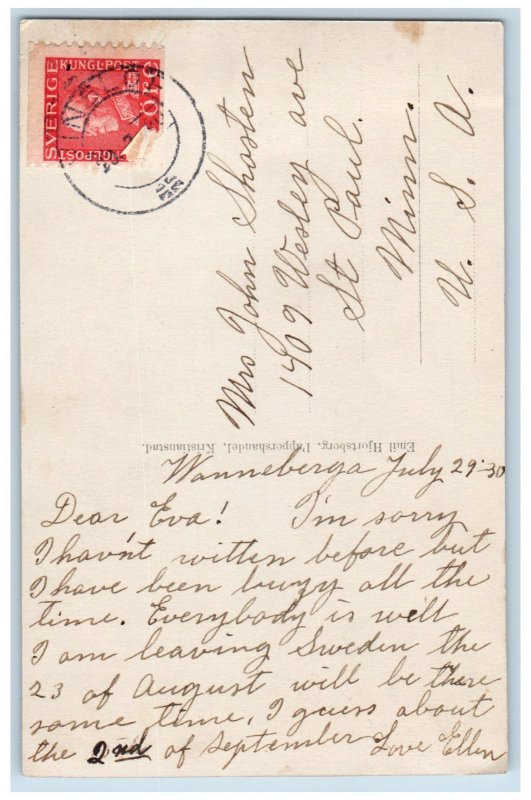 SVERIGE
KUNGL·POST
Mrs John Shosten
1409 Wesley ave
St Paul.
Minn.
U. S. A.
Emil Hjortsberg, Pappershandel, Kristianstad.
Wanneberga July 29-30
Dear Eva! I'm sorry
I havn't written before but
I have been buzy all the
time. Everybody is well
I am leaving Sweden the
23 of August will be there
some time, I guess about
the 2nd of September Love Ellen